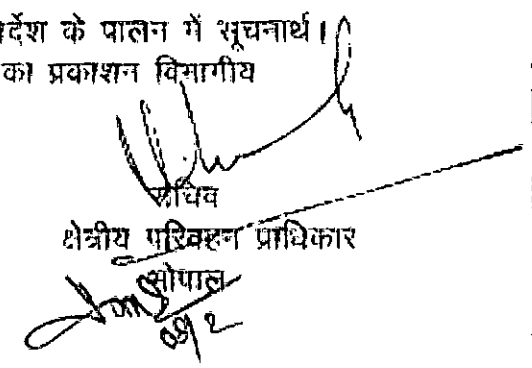 र्देश के पालन में सूचनार्थ।
का प्रकाशन विभागीय
सचिव
क्षेत्रीय परिवहन प्राधिकार
भोपाल